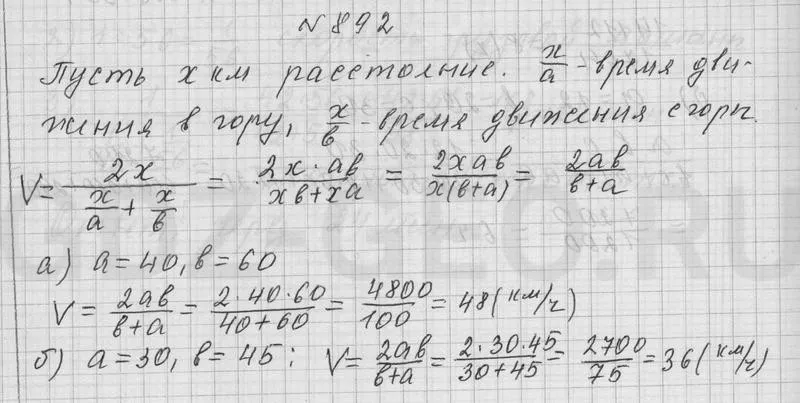 №892
Пусть x км расстояние. x/a - время дви-
жения в гору, x/b - время движения с горы.
V = 2x/(x/a + x/b) = 2x·ab/(xb+xa) = 2xab/(x(b+a)) = 2ab/(b+a)
а) a=40, b=60
V = 2ab/(b+a) = 2·40·60/(40+60) = 4800/100 = 48 (км/ч)
б) a=30, b=45: V = 2ab/(b+a) = 2·30·45/(30+45) = 2700/75 = 36 (км/ч)